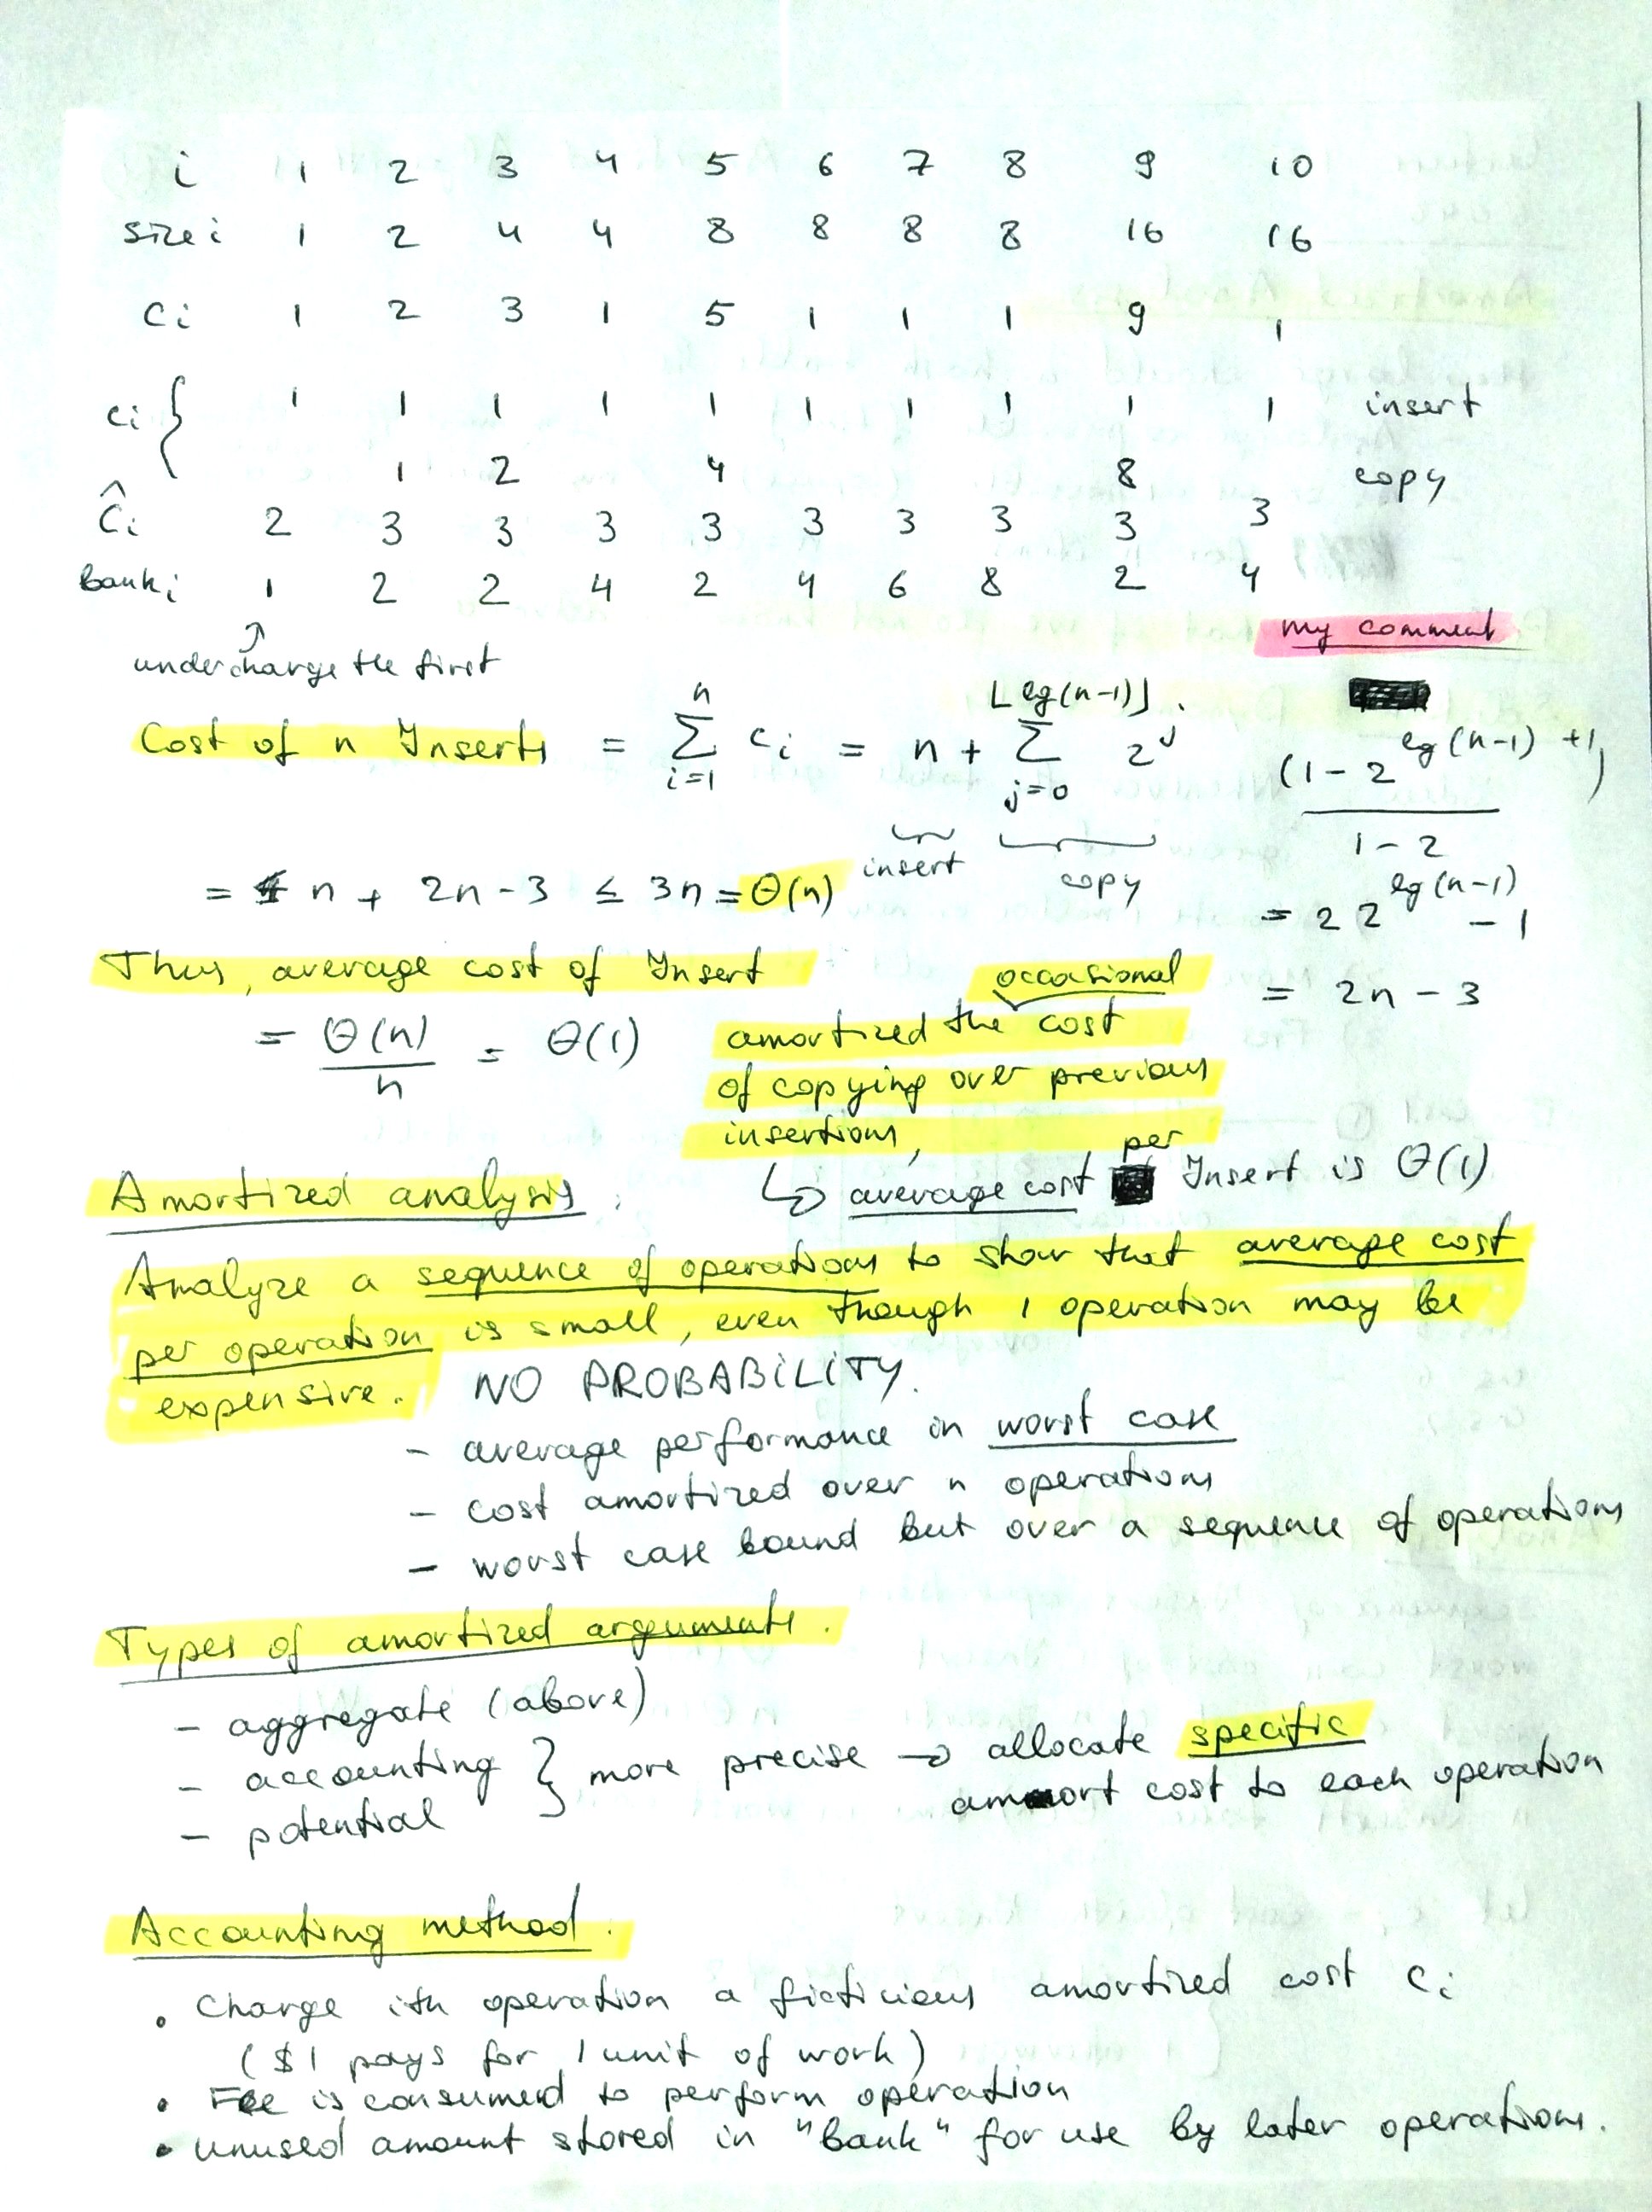 i 1 2 3 4 5 6 7 8 9 10
size i 1 2 4 4 8 8 8 8 16 16
ci 1 2 3 1 5 1 1 1 9 1
ci { 1 1 1 1 1 1 1 1 1 1 insert
1 2 4 8 copy
Ĉi 2 3 3 3 3 3 3 3 3 3
Banki 1 2 2 4 2 4 6 8 2 4
my comment
undercharge the first
Cost of n Inserts = Σ_{i=1}^{n} ci = n + Σ_{j=0}^{⌊lg(n-1)⌋} 2^j
insert copy
(1 - 2^{lg(n-1)+1}) / (1 - 2)
= n + 2n - 3 ≤ 3n = Θ(n)
= 2 2^{lg(n-1)} - 1
= 2n - 3
Thus, average cost of Insert
= Θ(n)/n = Θ(1)
amortized the occasional cost
of copying over previous
insertions,
↳ average cost per Insert is Θ(1)
Amortized analysis.
Analyze a sequence of operations to show that average cost
per operation is small, even though 1 operation may be
expensive. NO PROBABILITY.
- average performance in worst case
- cost amortized over n operations
- worst case bound but over a sequence of operations
Types of amortized arguments.
- aggregate (above)
- accounting
- potential
} more precise → allocate specific
amort cost to each operation
Accounting method.
• Charge ith operation a ficticious amortized cost ci
($1 pays for 1 unit of work)
• Fee is consumed to perform operation
• unused amount stored in "bank" for use by later operations.